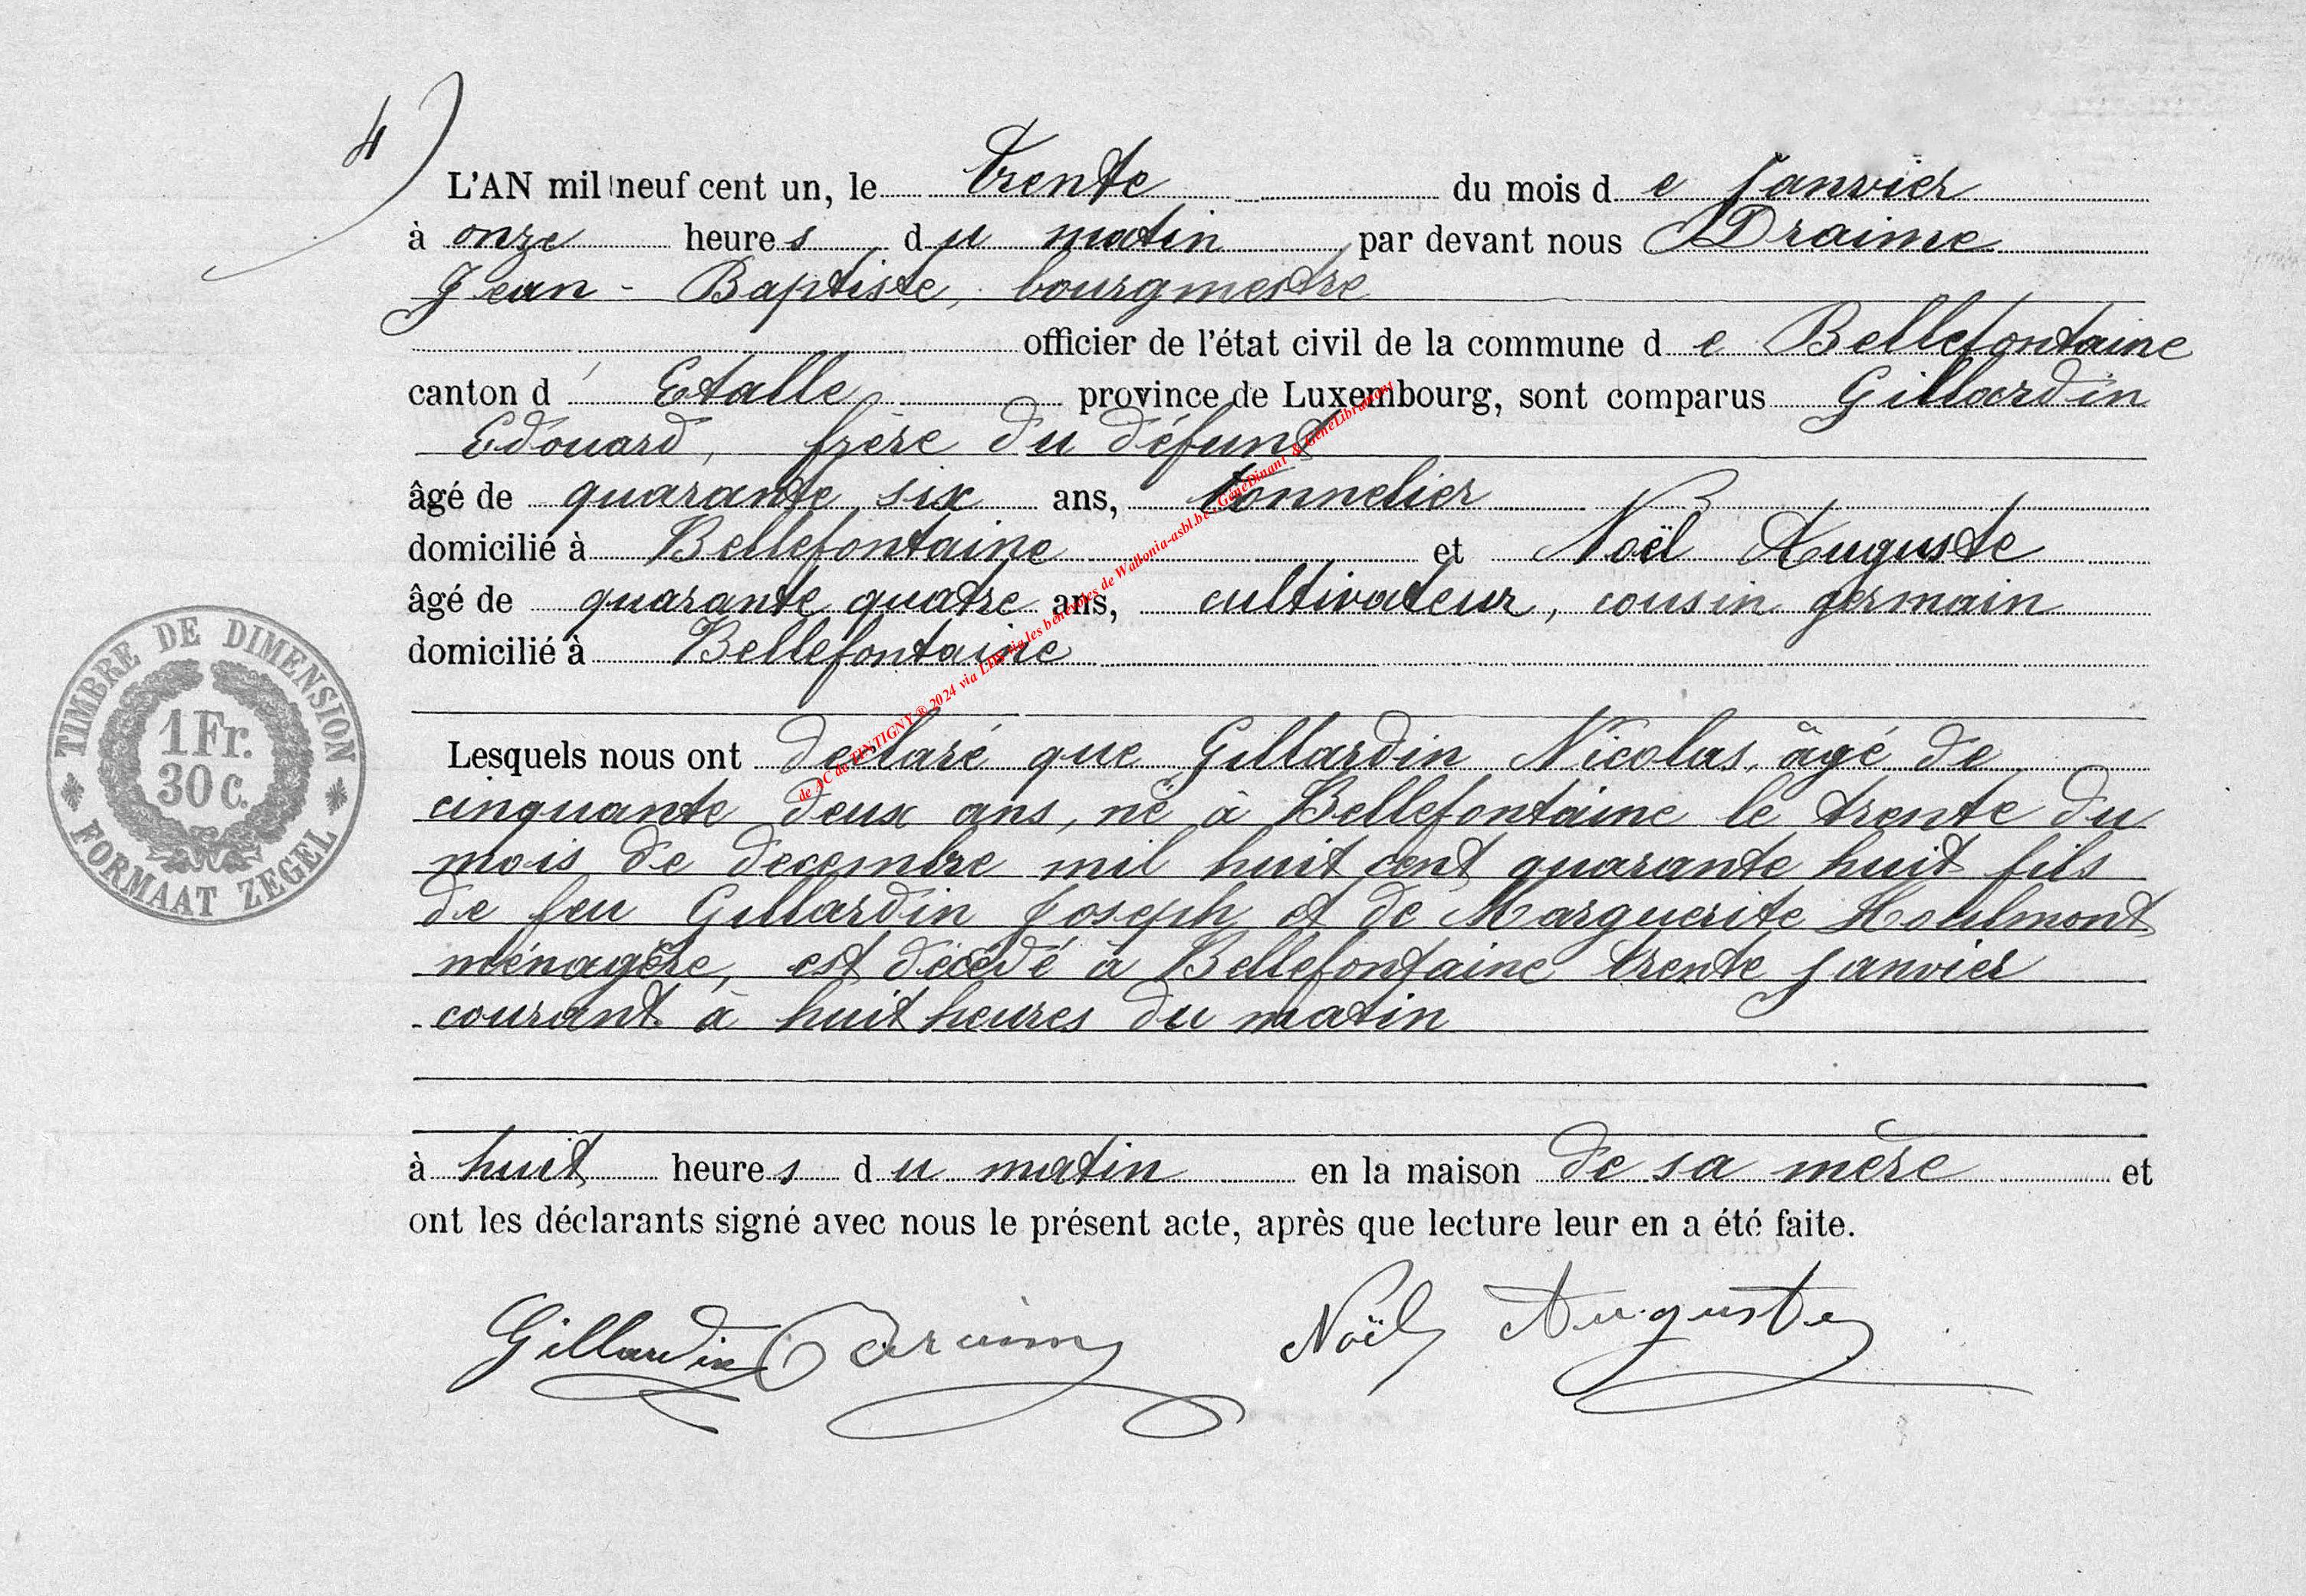 4)
L'AN mil neuf cent un, le trente du mois de Janvier
à onze heures du matin, par devant nous Draime
Jean - Baptiste, bourgmestre
officier de l'état civil de la commune de Bellefontaine
canton d'Etalle province de Luxembourg, sont comparus Gillardin
Edouard, frère du défunt
âgé de quarante six ans, tonnelier
domicilié à Bellefontaine et Noël Auguste
âgé de quarante quatre ans, cultivateur, cousin germain
domicilié à Bellefontaine
Lesquels nous ont déclaré que Gillardin Nicolas, âgé de
cinquante deux ans, né à Bellefontaine le trente du
mois de decembre mil huit cent quarante huit fils
de feu Gillardin Joseph et de Marguerite Houlmont
ménagère, est décédé à Bellefontaine trente janvier
courant à huit heures du matin
à huit heures du matin en la maison de sa mère et
ont les déclarants signé avec nous le présent acte, après que lecture leur en a été faite.
Gillardin Draime Noël Auguste
TIMBRE DE DIMENSION
1 Fr.
30 C.
FORMAAT ZEGEL
de AC de TINTIGNY ® 2024 via LDS via les bénévoles de Wallonia-asbl.be, GénéDinant & GénéLibramont